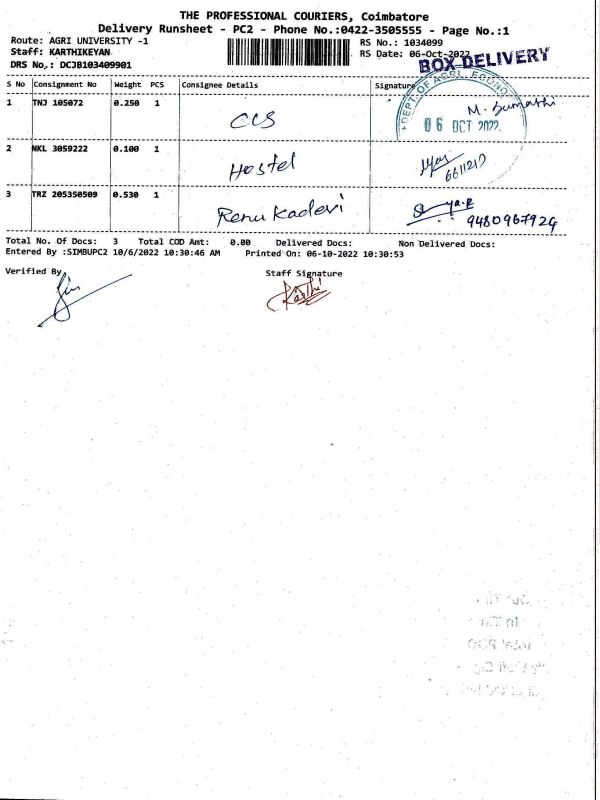 THE PROFESSIONAL COURIERS, Coimbatore
Delivery Runsheet - PC2 - Phone No.:0422-3505555 - Page No.:1
Route: AGRI UNIVERSITY -1 RS No.: 1034099
Staff: KARTHIKEYAN RS Date: 06-Oct-2022
DRS No,: DCJB103409901 BOX DELIVERY
S No Consignment No Weight PCS Consignee Details Signature
DEPT. OF AGRL.
1 TNJ 105072 0.250 1 CCS M. Sumathi
06 OCT 2022
2 NKL 3059222 0.100 1 Hostel
3 TRZ 205350509 0.530 1 Renukadevi
9480967924
Total No. Of Docs: 3 Total COD Amt: 0.00 Delivered Docs: Non Delivered Docs:
Entered By :SIMBUPC2 10/6/2022 10:30:46 AM Printed On: 06-10-2022 10:30:53
Verified By Staff Signature
Karthi